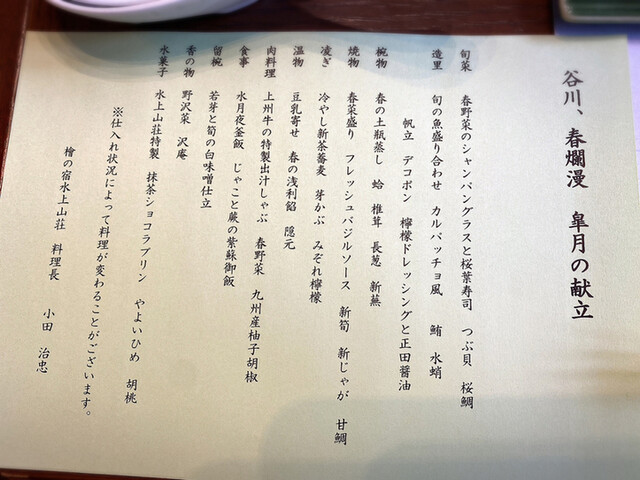 谷川、春爛漫　皐月の献立
旬菜　春野菜のシャンパングラスと桜葉寿司　つぶ貝　桜鯛
造里　旬の魚盛り合わせ　カルパッチョ風　鮪　水蛸
帆立　デコポン　檸檬ドレッシングと正田醤油
椀物　春の土瓶蒸し　蛤　椎茸　長葱　新蕪
焼物　春菜盛り　フレッシュバジルソース　新筍　新じゃが　甘鯛
凌ぎ　冷やし新茶蕎麦　芽かぶ　みぞれ檸檬
温物　豆乳寄せ　春の浅利餡　隠元
肉料理　上州牛の特製出汁しゃぶ　春野菜　九州産柚子胡椒
食事　水月夜釜飯　じゃこと蕨の紫蘇御飯
留椀　若芽と筍の白味噌仕立
香の物　野沢菜　沢庵
水菓子　水上山荘特製　抹茶ショコラプリン　やよいひめ　胡桃
※仕入れ状況によって料理が変わることがございます。
檜の宿水上山荘　料理長　小田　治忠